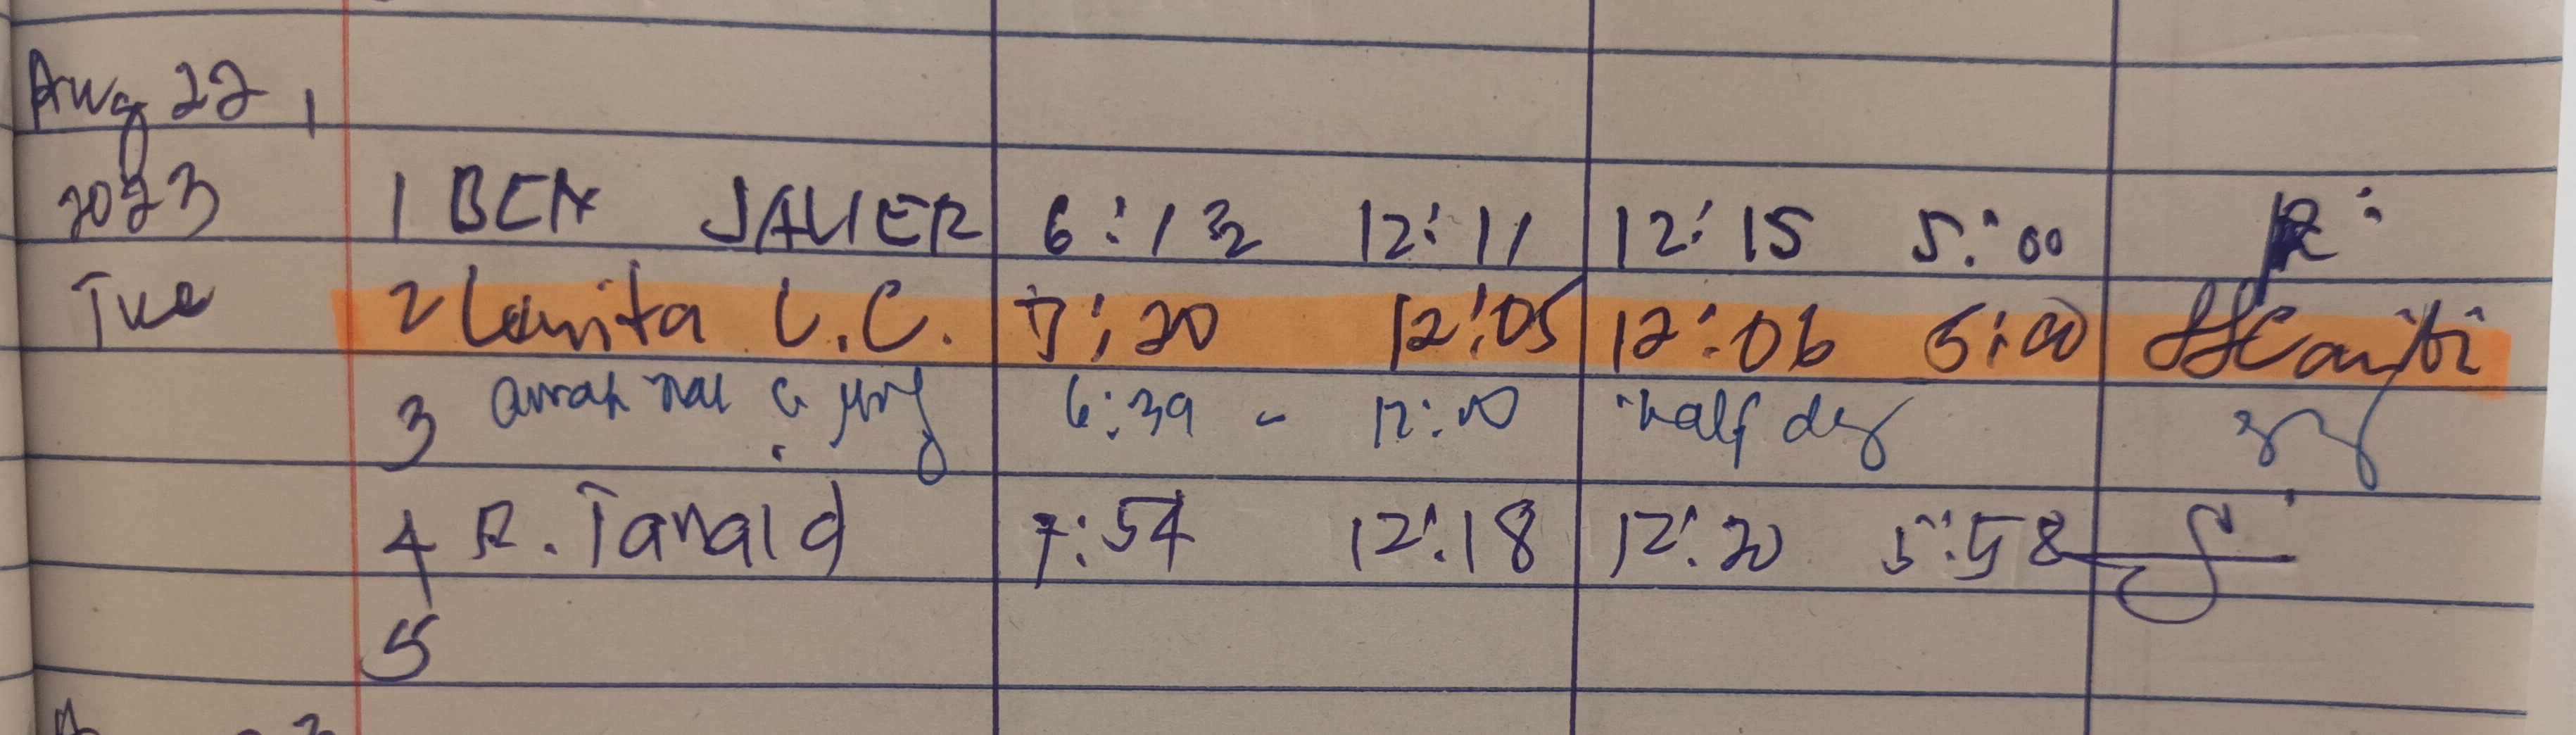 Aug 22,
2023 1 BEN JAVIER 6:13 12:11 12:15 5:00
Tue 2 Lanita L.C. 7:20 12:05 12:06 5:00
3 6:39 - 12:00 half day
4 R. Tanald 7:54 12:18 12:20 5:58
5